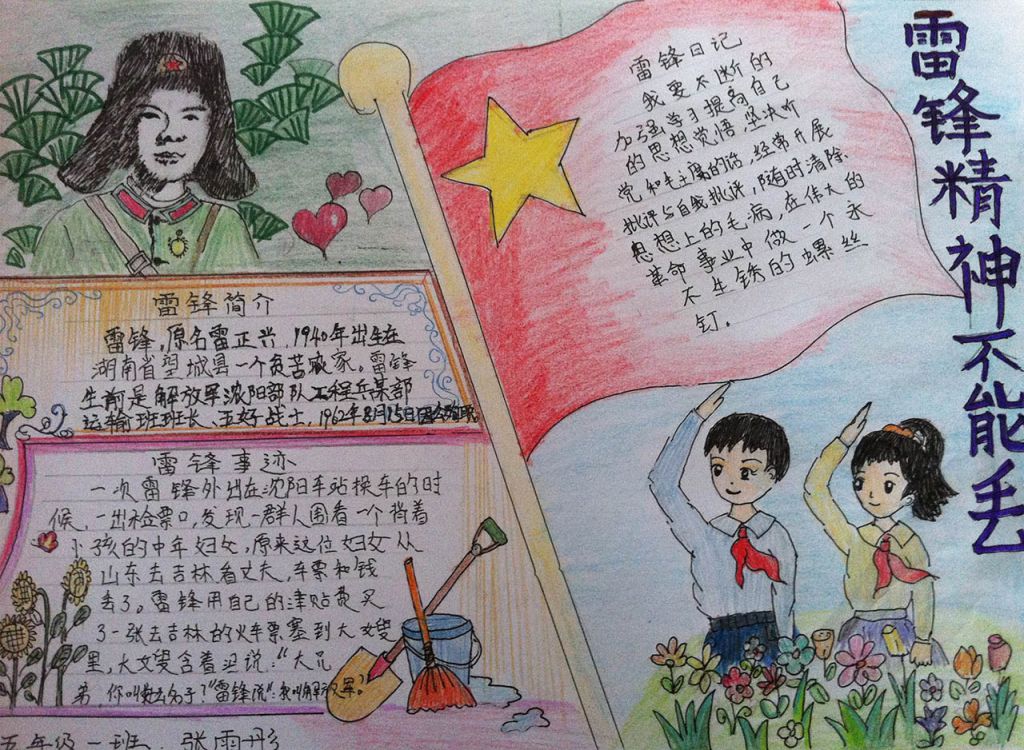 雷锋精神不能丢
雷锋日记
我要不断的
加强学习提高自己
的思想觉悟,坚决听
党和毛主席的话,经常开展
批评与自我批评,随时清除
思想上的毛病,在伟大的
革命事业中做一个永
不生锈的螺丝
钉。
雷锋简介
雷锋,原名雷正兴,1940年出生在
湖南省望城县一个贫苦农家。雷锋
生前是解放军沈阳部队工程兵某部
运输班班长、五好战士,1962年8月15日因公殉职
雷锋事迹
一次雷锋外出在沈阳车站换车的时
候,一出检票口,发现一群人围看一个背着
小孩的中年妇女,原来这位妇女从
山东去吉林看丈夫,车票和钱
丢了。雷锋用自己的津贴费买
了一张去吉林的火车票塞到大嫂
里,大嫂含着泪说:“大兄
弟,你叫什么名子?”雷锋说:“我叫解放军。”
五年级一班 张雨彤